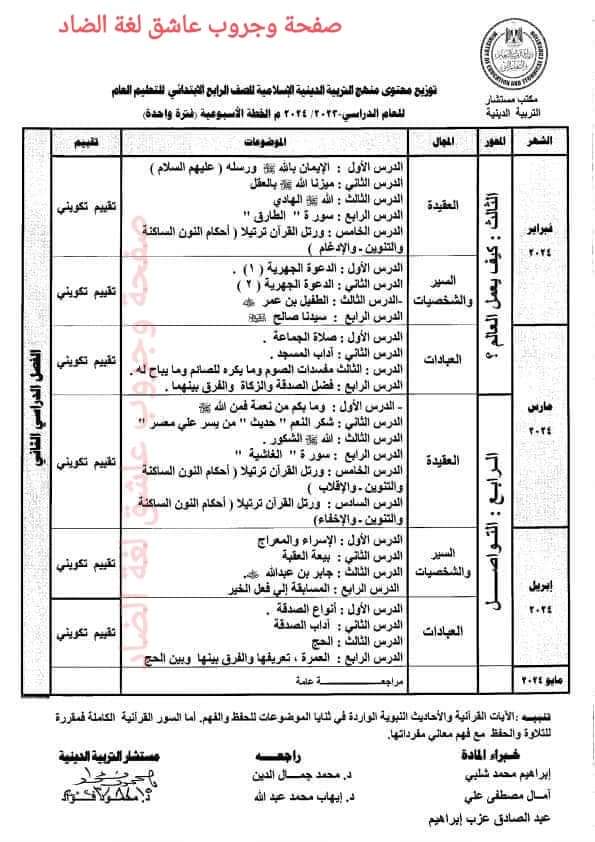 صفحة وجروب عاشق لغة الضاد
مكتب مستشار
التربية الدينية
توزيع محتوى منهج التربية الدينية الإسلامية للصف الرابع الابتدائي للتعليم العام
للعام الدراسي ٢٠٢٣/ ٢٠٢٤ م الخطة الأسبوعية (فترة واحدة)
الشهر المحور المجال الموضوعات تقييم
فبراير
٢٠٢٤
الثالث : كيف يعمل العالم ؟
العقيدة
الدرس الأول : الإيمان بالله ﷻ ورسله ( عليهم السلام )
الدرس الثاني : ميزنا الله ﷻ بالعقل
الدرس الثالث : الله ﷻ الهادي
الدرس الرابع : سورة " الطارق "
الدرس الخامس : ورتل القرآن ترتيلا ( أحكام النون الساكنة
والتنوين - والإدغام )
تقييم تكويني
السير
والشخصيات
الدرس الأول : الدعوة الجهرية ( ١ ) .
الدرس الثاني : الدعوة الجهرية ( ٢ )
-الدرس الثالث : الطفيل بن عمر
الدرس الرابع : سيدنا صالح
تقييم تكويني
مارس
٢٠٢٤
العبادات
الدرس الأول : صلاة الجماعة .
الدرس الثاني : آداب المسجد .
الدرس : الثالث مفسدات الصوم وما يكره للصائم وما يباح له .
الدرس الرابع : فضل الصدقة والزكاة والفرق بينهما .
تقييم تكويني
الفصل الدراسي الثاني
الرابع : التواصل
العقيدة
- الدرس الأول : وما بكم من نعمة فمن الله ﷻ
الدرس الثاني : شكر النعم " حديث " من يسر علي معسر "
الدرس الثالث : الله ﷻ الشكور .
الدرس الرابع : سورة " الغاشية "
الدرس الخامس : ورتل القرآن ترتيلا ( أحكام النون الساكنة
والتنوين - والإقلاب )
الدرس السادس : ورتل القرآن ترتيلا ( أحكام النون الساكنة
والتنوين - والإخفاء)
تقييم تكويني
إبريل
٢٠٢٤
السير
والشخصيات
الدرس الأول : الإسراء والمعراج
الدرس الثاني : بيعة العقبة
الدرس الثالث : جابر بن عبدالله
الدرس الرابع : المسابقة إلي فعل الخير
تقييم تكويني
العبادات
الدرس الأول : أنواع الصدقة .
الدرس الثاني : آداب الصدقة
الدرس الثالث : الحج
الدرس الرابع : العمرة ، تعريفها والفرق بينها وبين الحج
تقييم تكويني
مايو ٢٠٢٤ مراجعة عامة
صفحة وجروب عاشق لغة الضاد
تنبيه : الآيات القرآنية والأحاديث النبوية الواردة في ثنايا الموضوعات للحفظ والفهم. أما السور القرآنية الكاملة فمقررة
للتلاوة والحفظ مع فهم معاني مفرداتها.
خبراء المادة راجعه مستشار التربية الدينية
إبراهيم محمد شلبي د. محمد جمال الدين
آمال مصطفى علي د. إيهاب محمد عبد الله
عبد الصادق عزب إبراهيم